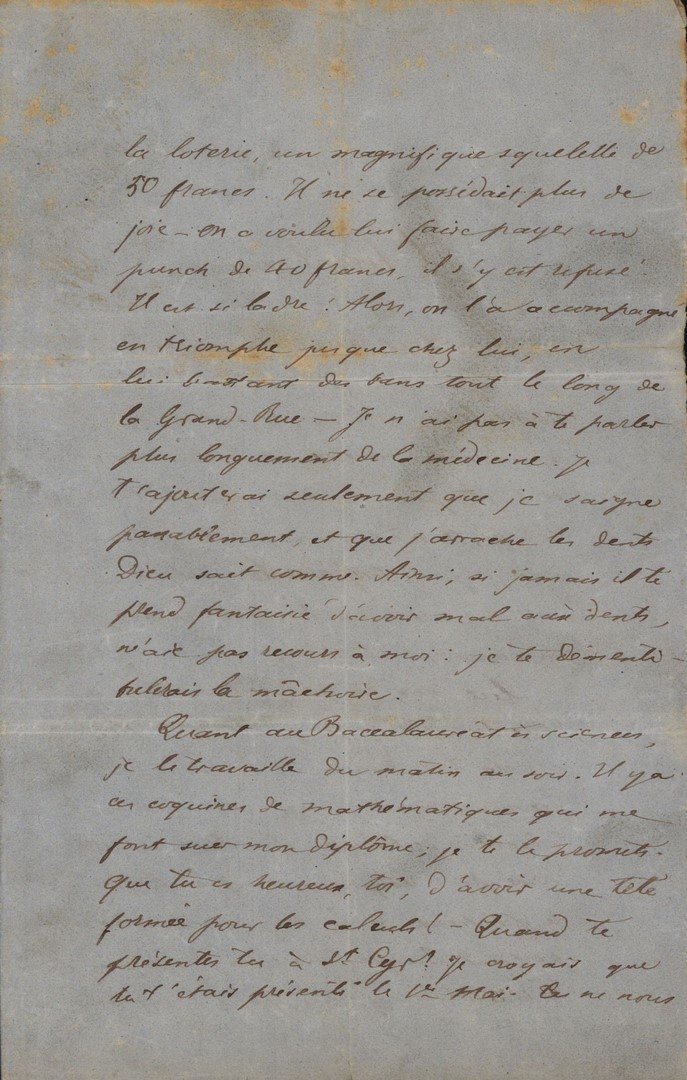 la loterie, un magnifique squelette de
50 francs. Il ne se possédait plus de
joie - on a voulu lui faire payer un
punch de 40 francs, il s'y est refusé.
Il est si ladre! Alors, on l'a accompagné
en triomphe jusque chez lui, en
lui battant des bans tout le long de
la Grand-Rue - Je n'ai pas à te parler
plus longuement de la médecine. Je
t'ajouterai seulement que je saigne
passablement, et que j'arrache les dents
Dieu sait comme. Ainsi, si jamais il te
prend fantaisie d'avoir mal aux dents,
n'aie pas recours à moi: je te démenti-
bulerais la mâchoire.
Quant au Baccalauréat ès sciences,
je le travaille du matin au soir. Il y a
ces coquines de mathématiques qui me
font suer mon diplôme, je te le promets.
Que tu es heureux, toi, d'avoir une tête
formée pour les calculs! - Quand te
présentes tu à St Cyr? Je croyais que
tu t'étais présenté le 1er Mai. Tu ne nous